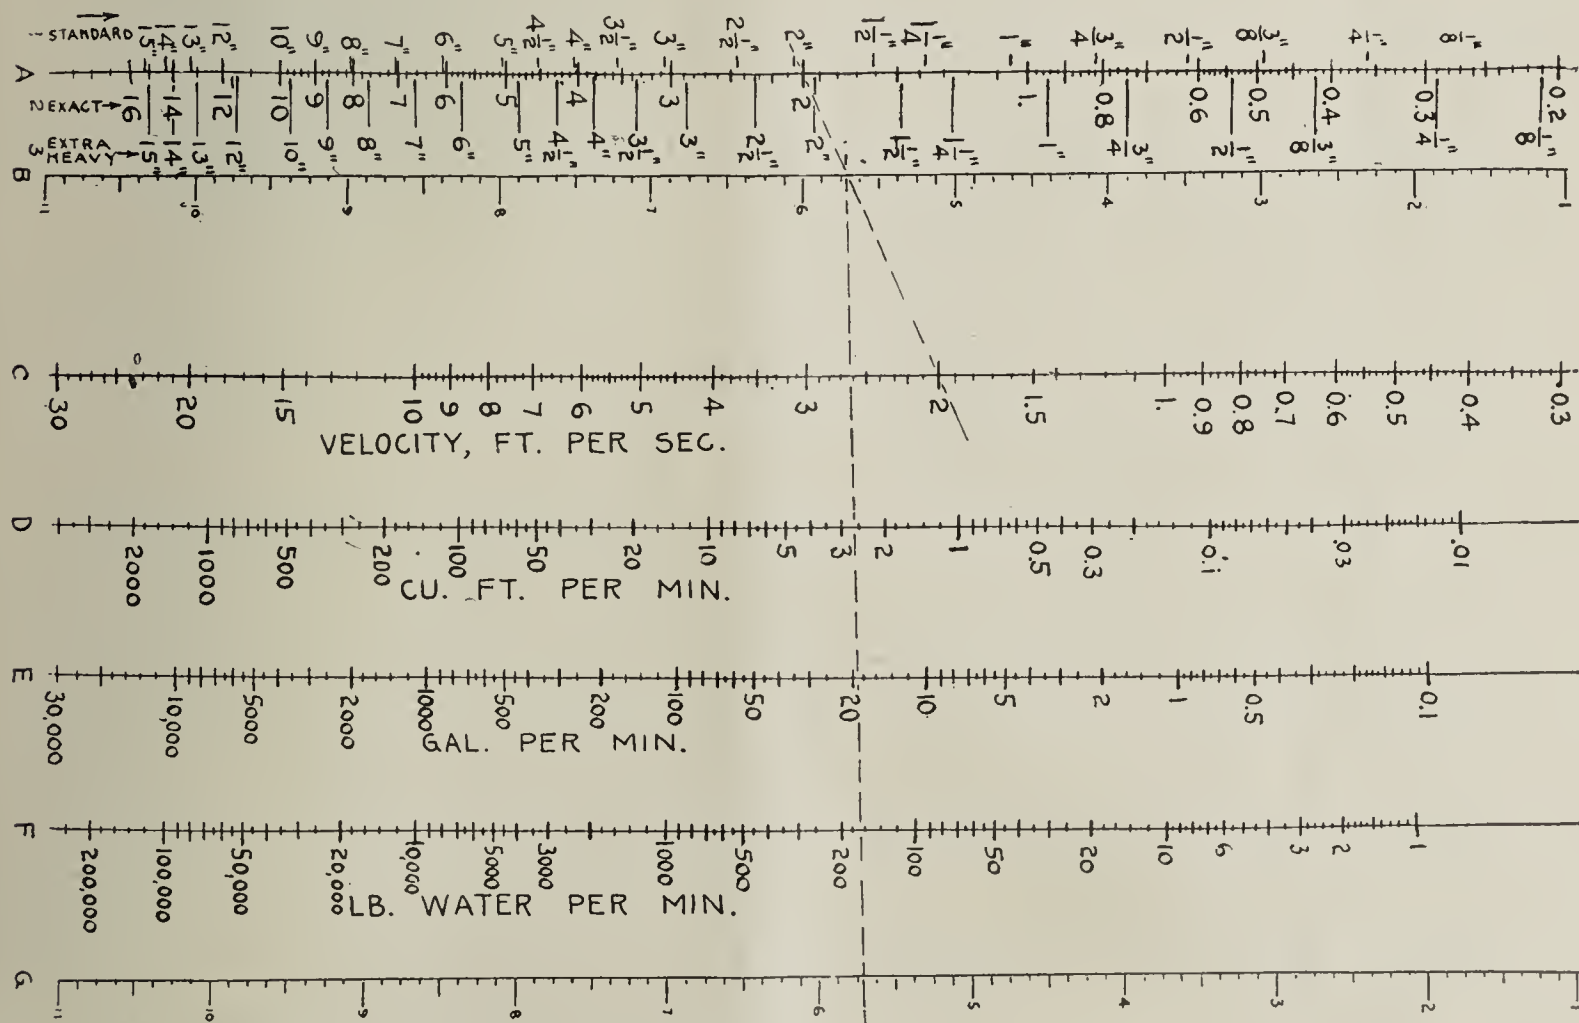 1 STANDARD → 15" 14" 13" 12" 10" 9" 8" 7" 6" 5" 4 1/2" 4" 3 1/2" 3" 2 1/2" 2" 1 1/2" 1 1/4" 1" 3/4" 1/2" 3/8" 1/4" 1/8"
A
2 EXACT → 16 14 12 10 9 8 7 6 5 4 3 2 1. 0.8 0.6 0.5 0.4 0.3 0.2
3 EXTRA
HEAVY → 15" 14" 13" 12" 10" 9" 8" 7" 6" 5" 4 1/2" 4" 3 1/2" 3" 2 1/2" 2" 1 1/2" 1 1/4" 1" 3/4" 1/2" 3/8" 1/4" 1/8"
B
11 10 9 8 7 6 5 4 3 2 1
C
30 20 15 10 9 8 7 6 5 4 3 2 1.5 1. 0.9 0.8 0.7 0.6 0.5 0.4 0.3
VELOCITY, FT. PER SEC.
D
2000 1000 500 200 100 50 20 10 5 3 2 1 0.5 0.3 0.1 .03 .01
CU. FT. PER MIN.
E
30,000 10,000 5000 2000 1000 500 200 100 50 20 10 5 2 1 0.5 0.1
GAL. PER MIN.
F
200,000 100,000 50,000 20,000 10,000 5000 3000 1000 500 200 100 50 20 10 6 3 2 1
LB. WATER PER MIN.
G
11 10 9 8 7 6 5 4 3 2 1